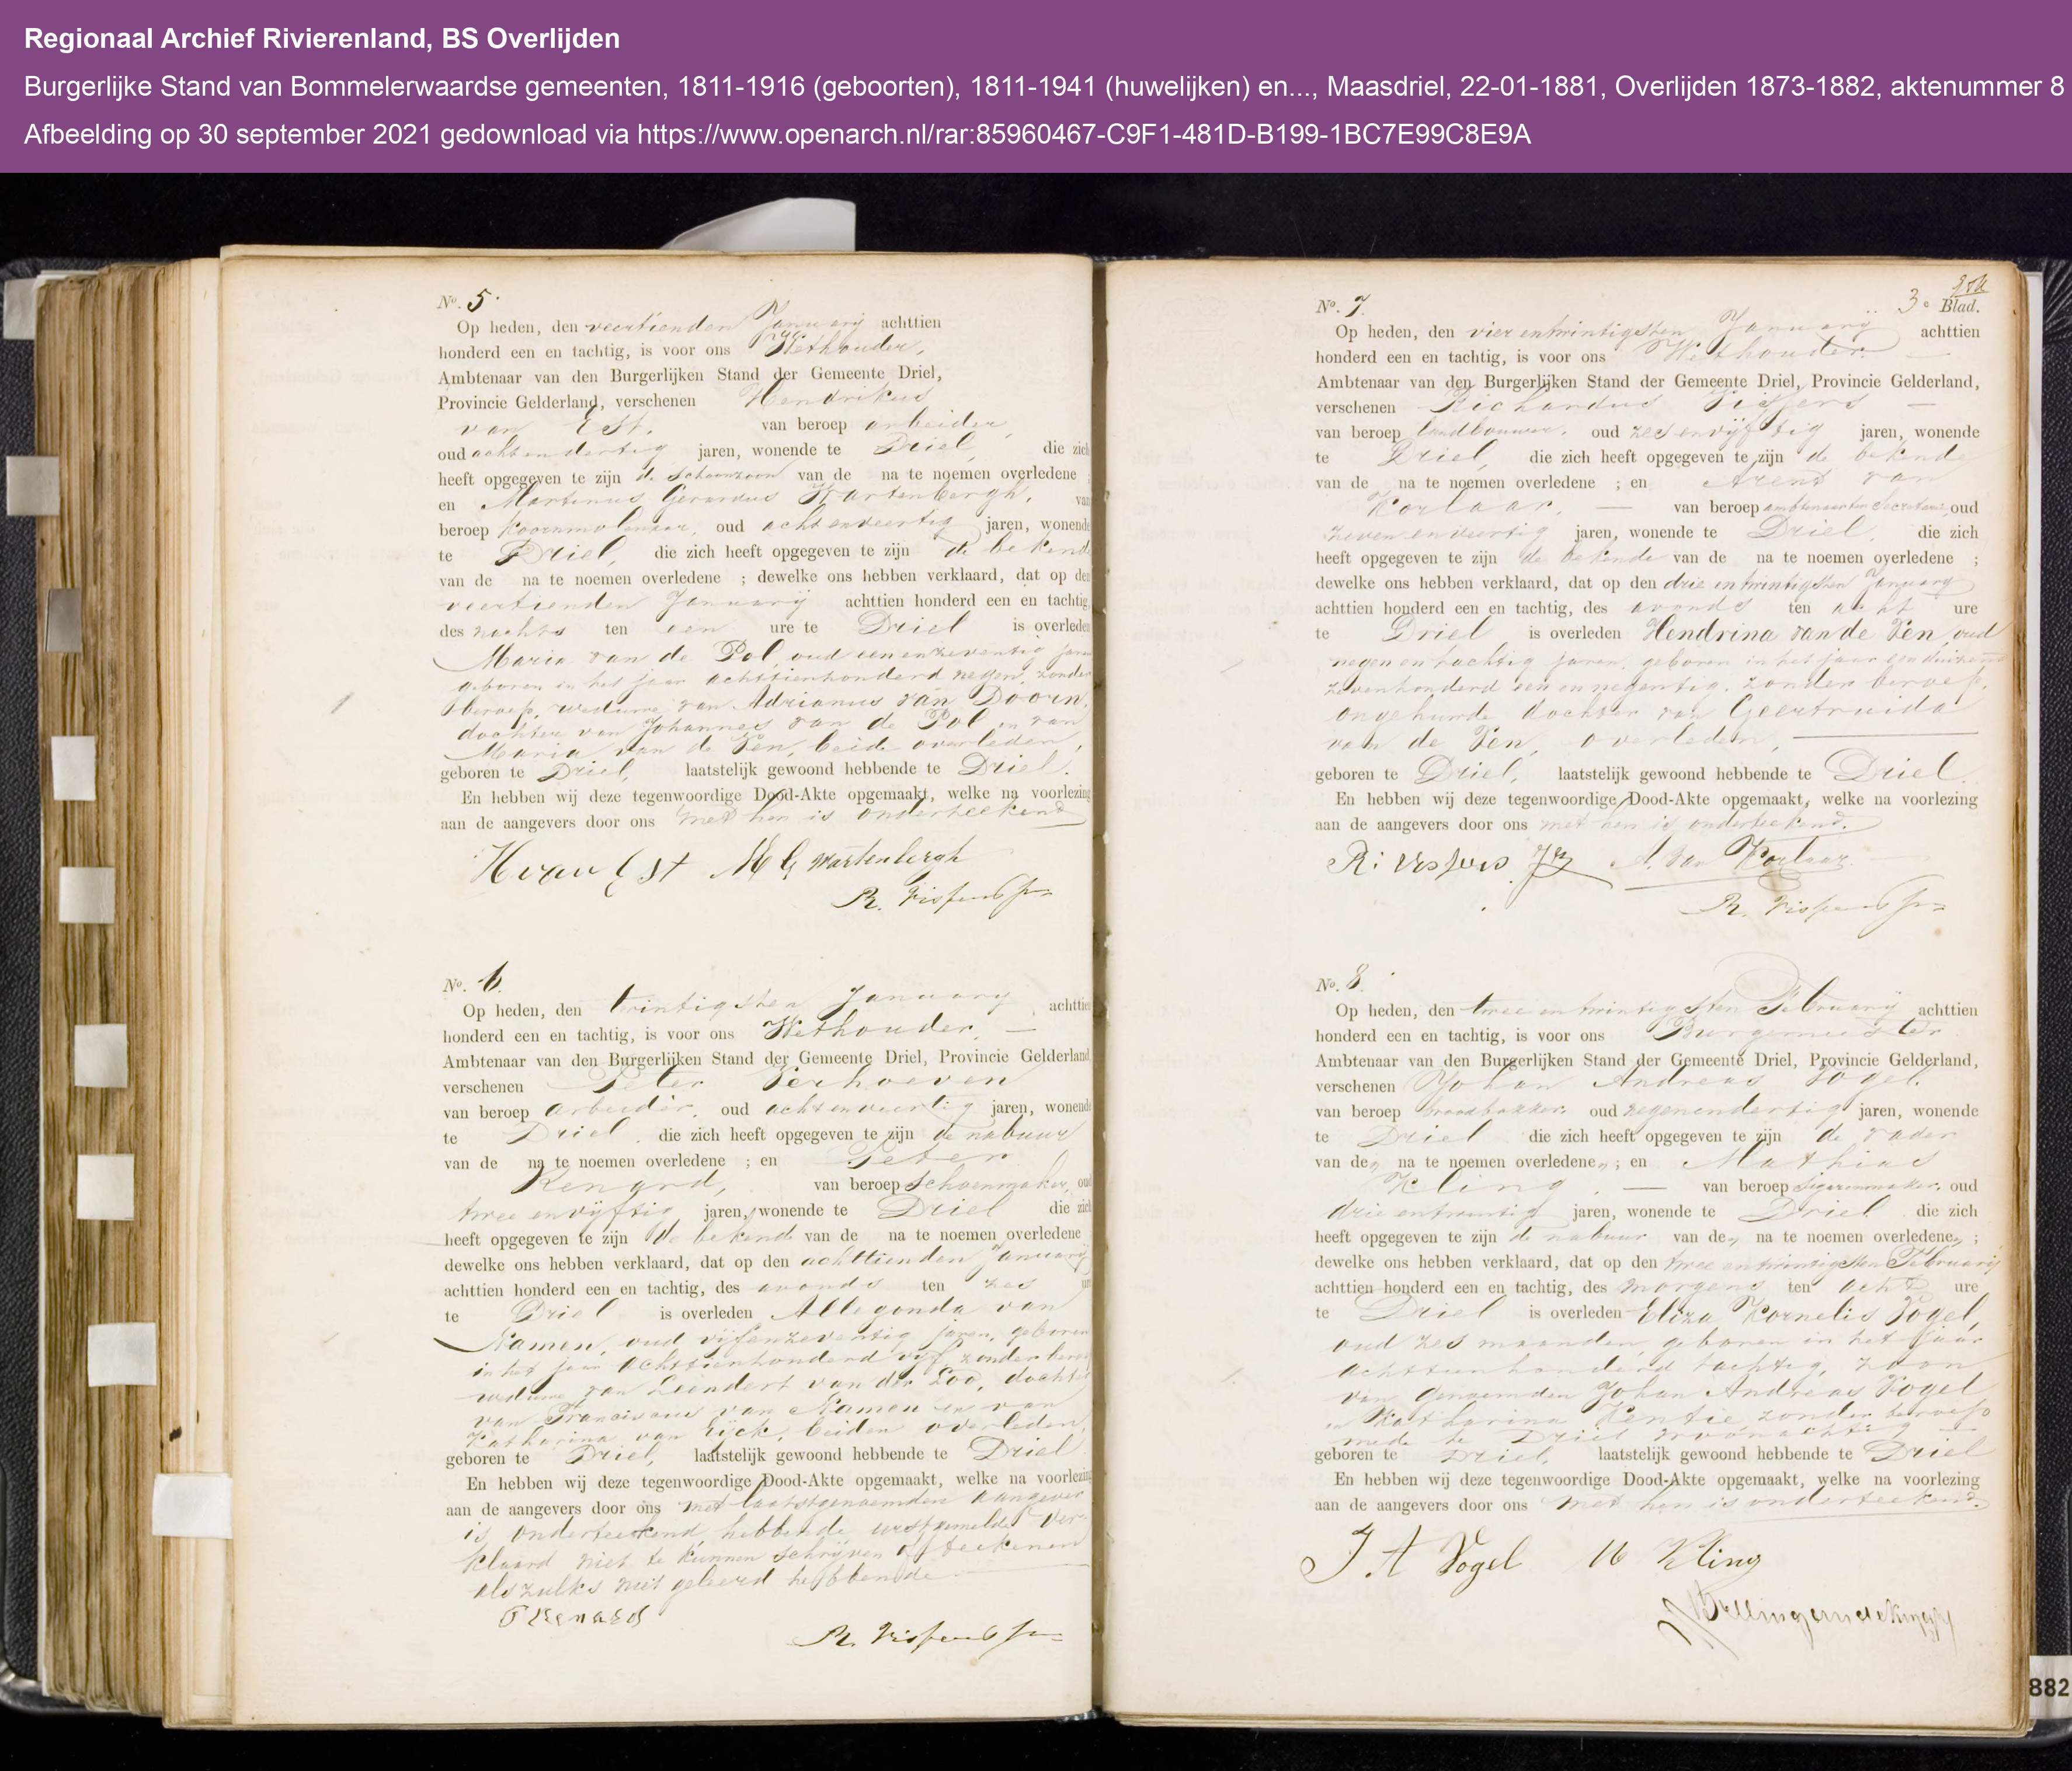 Regionaal Archief Rivierenland, BS Overlijden
Burgerlijke Stand van Bommelerwaardse gemeenten, 1811-1916 (geboorten), 1811-1941 (huwelijken) en..., Maasdriel, 22-01-1881, Overlijden 1873-1882, aktenummer 8
Afbeelding op 30 september 2021 gedownload via https://www.openarch.nl/rar:85960467-C9F1-481D-B199-1BC7E99C8E9A
No. 5.
Op heden, den veertienden January achttien
honderd een en tachtig, is voor ons Wethouder,
Ambtenaar van den Burgerlijken Stand der Gemeente Driel,
Provincie Gelderland, verschenen Hendrikus
van Est, van beroep arbeider,
oud achtendertig jaren, wonende te Driel, die zich
heeft opgegeven te zijn de schoonzoon van de na te noemen overledene ;
en Martinus Gerardus Wartenbergh, van
beroep koornmolenaar, oud achtenveertig jaren, wonende
te Driel, die zich heeft opgegeven te zijn de bekende
van de na te noemen overledene ; dewelke ons hebben verklaard, dat op den
veertienden January achttien honderd een en tachtig,
des nachts ten een ure te Driel is overleden
Maria van de Pol, oud eenenzeventig jaren
geboren in het jaar achttienhonderd negen, zonder
beroep, weduwe van Adrianus van Doorn,
dochter van Johannes van de Pol en van
Maria van de Ven, beide overleden,
geboren te Driel, laatstelijk gewoond hebbende te Driel.
En hebben wij deze tegenwoordige Dood-Akte opgemaakt, welke na voorlezing
aan de aangevers door ons met hen is onderteekend
H van Est M G Wartenbergh
R. Vissers Jr
No. 6.
Op heden, den twintigsten January achttien
honderd een en tachtig, is voor ons Wethouder,
Ambtenaar van den Burgerlijken Stand der Gemeente Driel, Provincie Gelderland
verschenen Peter Verhoeven
van beroep arbeider, oud achtenveertig jaren, wonende
te Driel, die zich heeft opgegeven te zijn de nabuur
van de na te noemen overledene ; en Peter
Renard, van beroep schoenmaker, oud
twee envijftig jaren, wonende te Driel die zich
heeft opgegeven te zijn de bekende van de na te noemen overledene
dewelke ons hebben verklaard, dat op den achttienden January
achttien honderd een en tachtig, des avonds ten zes ure
te Driel is overleden Allegonda van
Namen, oud vijfenzeventig jaren, geboren
in het jaar achttienhonderd vijf zonder beroep
weduwe van Leendert van der Loo, dochter
van Franciscus van Namen en van
Katharina van Eijck, beiden overleden,
geboren te Driel, laatstelijk gewoond hebbende te Driel.
En hebben wij deze tegenwoordige Dood-Akte opgemaakt, welke na voorlezing
aan de aangevers door ons met laatstgenoemden aangever
is onderteekend hebbende eerstgemelde ver-
klaard niet te kunnen schrijven of teekenen
als zulks niet geleerd hebbende.
P Renard
R. Vissers Jr
3e Blad.
No. 7.
Op heden, den vier entwintigsten January achttien
honderd een en tachtig, is voor ons Wethouder
Ambtenaar van den Burgerlijken Stand der Gemeente Driel, Provincie Gelderland,
verschenen Richardus Vissers
van beroep landbouwer, oud zes envijftig jaren, wonende
te Driel, die zich heeft opgegeven te zijn de bekende
van de na te noemen overledene ; en Arent van
Korlaar, van beroep ambtenaar ter Secretarie, oud
zeven enveertig jaren, wonende te Driel, die zich
heeft opgegeven te zijn de bekende van de na te noemen overledene ;
dewelke ons hebben verklaard, dat op den drie entwintigsten January
achttien honderd een en tachtig, des avonds ten acht ure
te Driel is overleden Hendrina van de Ven, oud
negen en tachtig jaren, geboren in het jaar een duizend
zevenhonderd een en negentig, zonder beroep,
ongehuwde dochter van Geertruida
van de Ven, overleden,
geboren te Driel, laatstelijk gewoond hebbende te Driel.
En hebben wij deze tegenwoordige Dood-Akte opgemaakt, welke na voorlezing
aan de aangevers door ons met hen is onderteekend.
Ri Vissers Jz A. van Korlaar
R. Vissers Jr
No. 8.
Op heden, den twee entwintigsten February achttien
honderd een en tachtig, is voor ons Burgemeester
Ambtenaar van den Burgerlijken Stand der Gemeente Driel, Provincie Gelderland,
verschenen Johan Andreas Vogel,
van beroep broodbakker, oud negenendertig jaren, wonende
te Driel die zich heeft opgegeven te zijn de vader
van den na te noemen overledenen ; en Mathias
Kling, van beroep sigarenmaker, oud
drie entwintig jaren, wonende te Driel die zich
heeft opgegeven te zijn de nabuur van den na te noemen overledenen ;
dewelke ons hebben verklaard, dat op den twee entwintigsten February
achttien honderd een en tachtig, des morgens ten acht ure
te Driel is overleden Eliza Kornelis Vogel,
oud zes maanden, geboren in het jaar
achttienhonderd tachtig, zoon
van genoemden Johan Andreas Vogel
en Katharina Kentie zonder beroep
mede te Driel woonachtig
geboren te Driel, laatstelijk gewoond hebbende te Driel
En hebben wij deze tegenwoordige Dood-Akte opgemaakt, welke na voorlezing
aan de aangevers door ons met hen is onderteekend.
J A Vogel M Kling
882